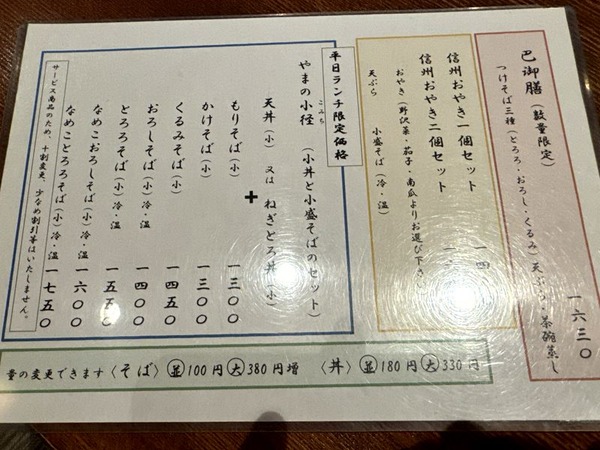 巴御膳(数量限定)
つけそば三種(とろろ・おろし・くるみ)天ぷら・茶碗蒸し
一六三〇
信州おやき一個セット 一四
信州おやき二個セット 一
おやき(野沢菜・茄子・南瓜よりお選び下さい
天ぷら 小盛そば(冷・温)
平日ランチ限定価格
やまの小径(小丼と小盛そばのセット)
こみち
天丼(小) 又は ねぎとろ丼(小)
+
もりそば(小) 一三〇〇
かけそば(小) 一三〇〇
くるみそば(小) 一四五〇
おろしそば(小)冷・温 一四〇〇
とろろそば(小)冷・温 一五五〇
なめこおろしそば(小)冷・温 一六〇〇
なめことろろそば(小)冷・温 一七五〇
サービス商品のため、十割変更、少なめ割引等はいたしません。
量の変更できます〈そば〉並100円大380円増 〈丼〉並180円大330円